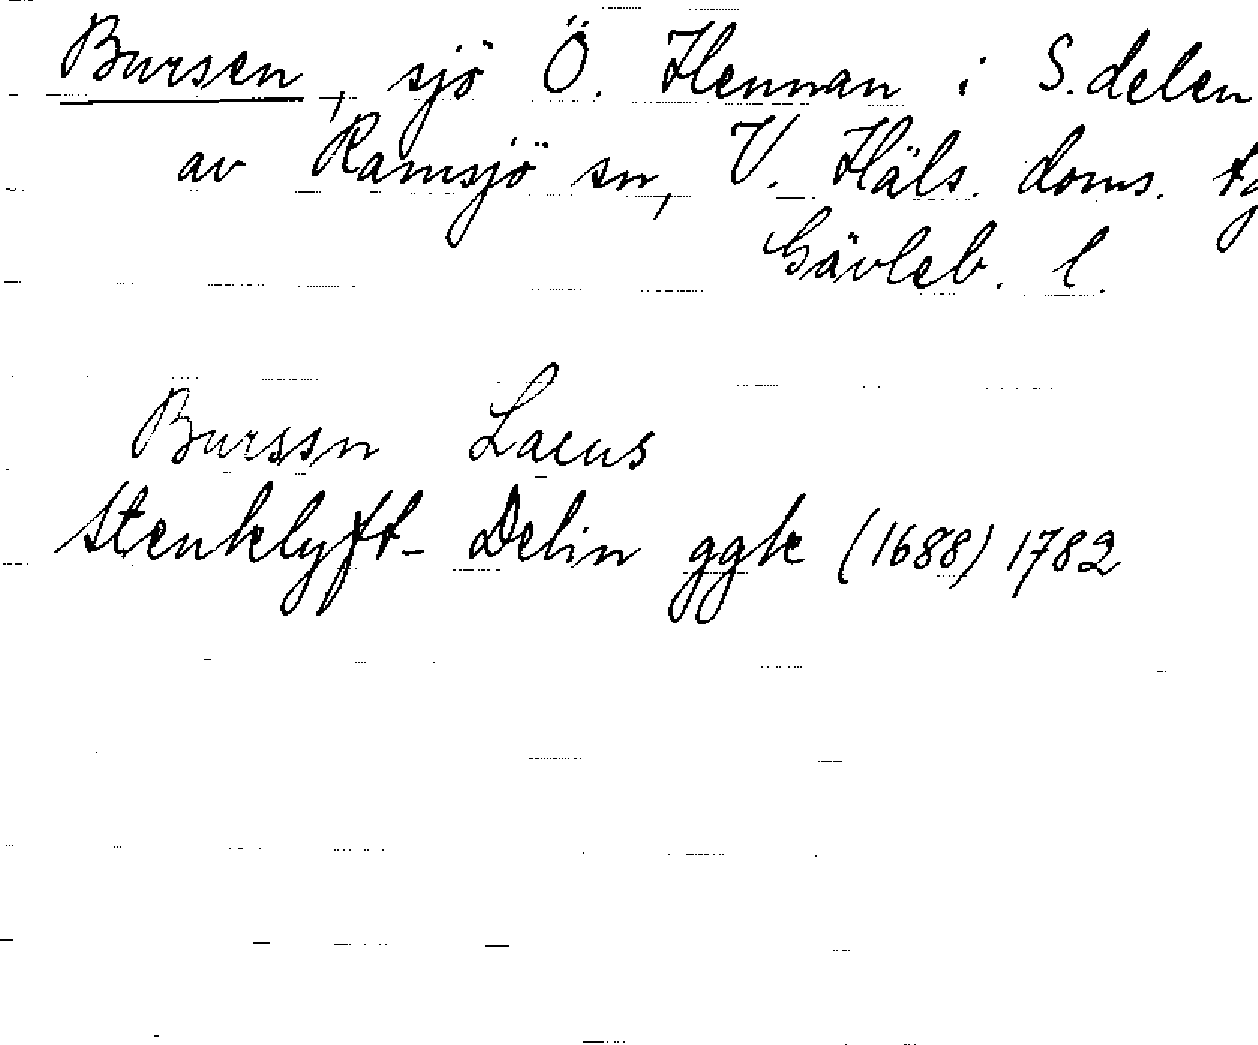 Bursen, sjö Ö. Hennan i S. delen
av Ramsjö sn, V. Häls. doms.
Gävleb. l.
Burssn Lacus
Stenklyft- Delin ggk (1688) 1782